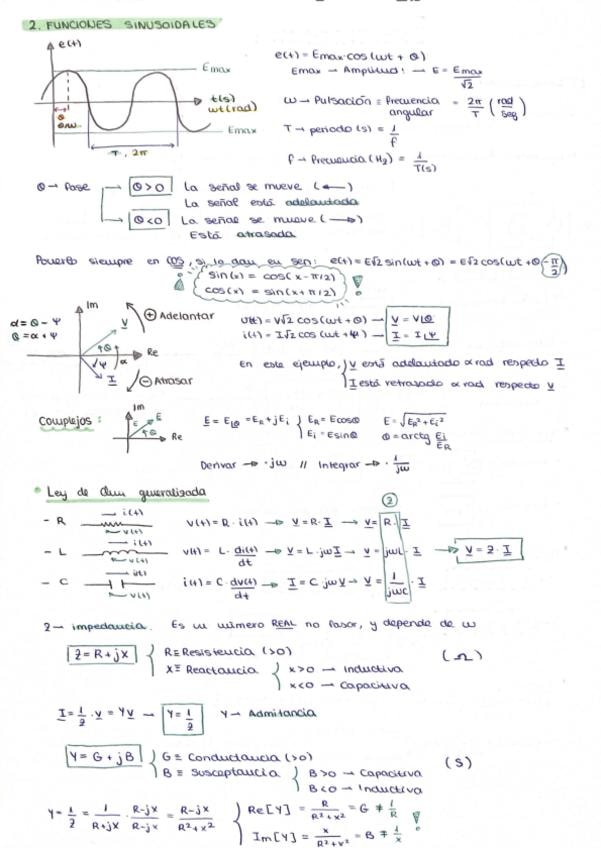 2. FUNCIONES SINUSOIDALES
e(t)
Emax
t(s)
wt(rad)
θ
θ/w
Emax
T, 2π
e(t) = Emax·cos(wt + θ)
Emax → Amplitud! → E = Emax/√2
W → Pulsación ≡ Frecuencia angular = 2π/T (rad/seg)
T → periodo (s) = 1/f
f → Frecuencia (Hz) = 1/T(s)
θ → fase
θ>0 La señal se mueve (←)
La señal está adelantada
θ<0 La señal se mueve (→)
Está atrasada
Ponerlo siempre en cos, si lo dan en sen: e(t) = E√2 sin(wt + θ) = E√2 cos(wt + θ - π/2)
sin(x) = cos(x - π/2)
cos(x) = sin(x + π/2)
α = θ - Ψ
θ = α + Ψ
Im
V
θ
Ψ
α
Re
I
+ Adelantar
- Atrasar
v(t) = V√2 cos(wt + θ) → V = V∠θ
i(t) = I√2 cos(wt + Ψ) → I = I∠Ψ
En este ejemplo, V está adelantado α rad respecto I
I está retrasado α rad respecto V
Complejos:
Im
E
E
θ
Re
E = E∠θ = ER + jEi
ER = Ecosθ
Ei = Esinθ
E = √ER² + Ei²
θ = arctg Ei/ER
Derivar → ·jw // Integrar → · 1/jw
Ley de Ohm generalizada
- R i(t) v(t) v(t) = R · i(t) → V = R · I → V = R · I
- L i(t) v(t) v(t) = L · di(t)/dt → V = L · jwI → V = jwL · I → V = Z · I
- C i(t) v(t) i(t) = C · dv(t)/dt → I = C jwV → V = 1/jwC · I
Z
Z → impedancia. Es un número REAL no fasor, y depende de w
Z = R + jX
R ≡ Resistencia (>0)
X ≡ Reactancia
x>0 → Inductiva
x<0 → Capacitiva
(Ω)
I = 1/Z · V = YV → Y = 1/Z Y → Admitancia
Y = G + jB
G ≡ Conductancia (>0)
B ≡ Susceptancia
B>0 → Capacitiva
B<0 → Inductiva
(S)
Y = 1/Z = 1/R+jX · R-jX/R-jX = R-jX/R²+X²
Re[Y] = R/R²+X² = G ≠ 1/R
Im[Y] = x/R²+X² = B ≠ 1/x
!